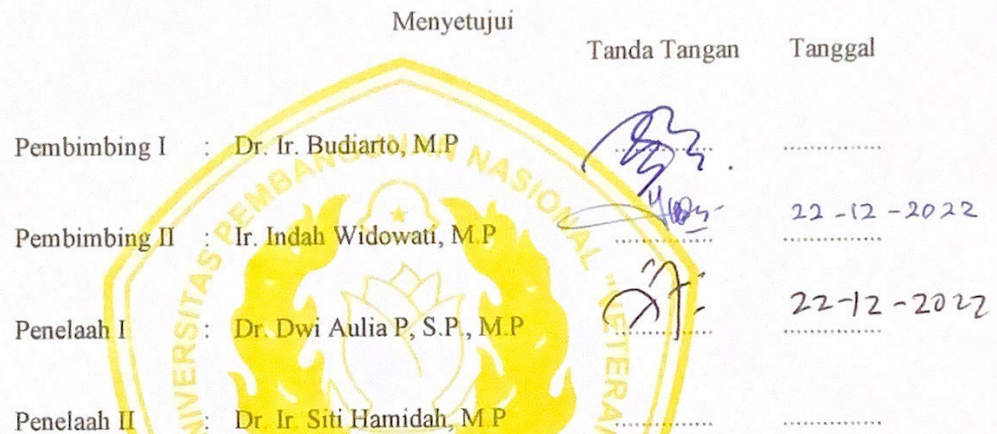 Menyetujui
Tanda Tangan Tanggal
Pembimbing I : Dr. Ir. Budiarto, M.P ..................
Pembimbing II : Ir. Indah Widowati, M.P 22-12-2022
Penelaah I : Dr. Dwi Aulia P, S.P., M.P 22-12-2022
Penelaah II : Dr. Ir. Siti Hamidah, M.P .................. ..................
UNIVERSITAS PEMBANGUNAN NASIONAL "VETERA